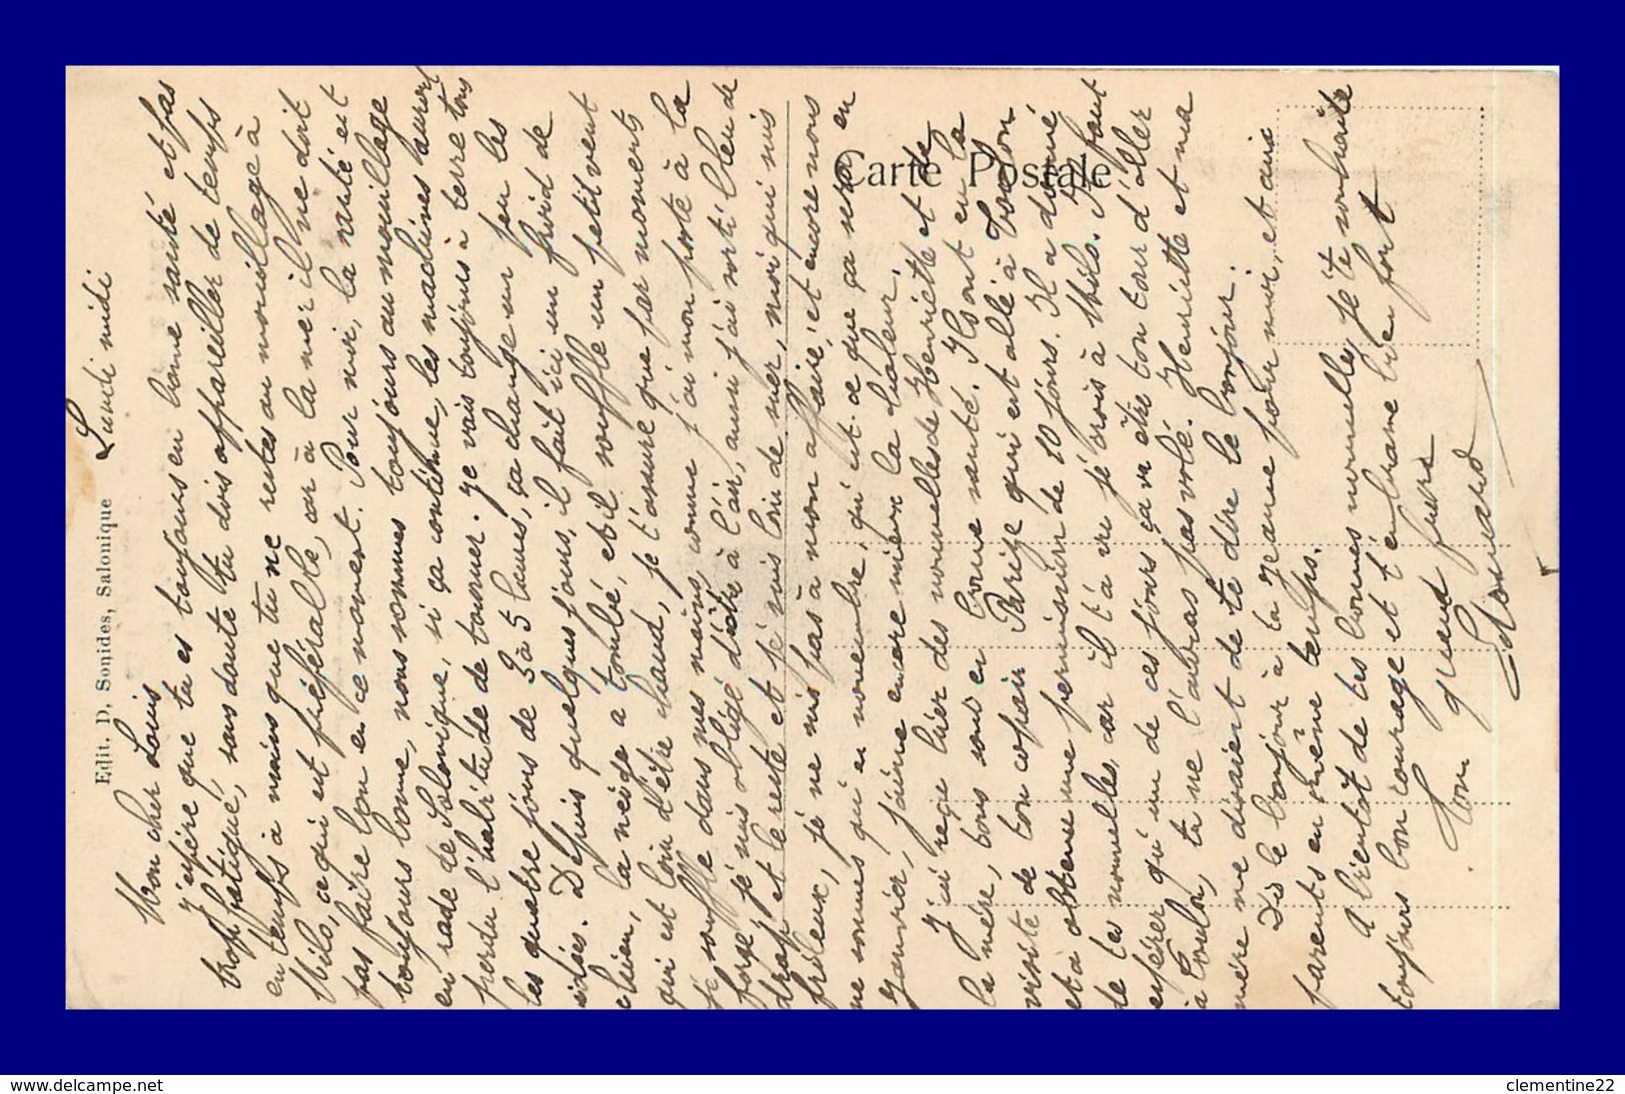 Edit. D. Sonides, Salonique
Lundi midi
Mon cher Louis
J'espère que tu es toujours en bonne santé et pas
trop fatigué, sans doute tu dois appareiller de temps
en temps à moins que tu ne restes au mouillage à
Milo, ce qui est préférable, car à la mer il ne doit
pas faire bon en ce moment. Pour moi, la santé est
toujours bonne, nous sommes toujours au mouillage
en rade de Salonique, si ça continue, les machines auront
perdu l'habitude de tourner. Je vais toujours à terre tous
les quatre jours de 3 à 5 heures, ça change un peu les
idées. Depuis quelques jours, il fait ici un froid de
chien, la neige a tombé, et il souffle un petit vent
qui est loin d'être chaud, je t'assure que par moments
je souffle dans mes mains, comme j'ai mon poste à la
forge je suis obligé d'être à l'air, aussi j'ai sorti bleu de
drap et le reste et je suis loin de suer, moi qui suis
frileux, je ne suis pas à mon affaire, et encore nous
ne sommes qu'en novembre, qu'est-ce que ça sera en
Janvier, j'aime encore mieux la chaleur.
J'ai reçu hier des nouvelles de Henriette et de
la mère, tous sont en bonne santé. Ils ont eu la
visite de ton copain Parize qui est allé à Toulon
et a obtenu une permission de 10 jours. Il a donné
de tes nouvelles, car il t'a vu je crois à Milo. Il faut
espérer qu'un de ces jours ça va être ton tour d'aller
à Toulon, tu ne l'auras pas volé. Henriette et ma
mère me disaient de te dire le bonjour.
Dis le bonjour à ta Jeanne pour moi, et aux
parents en même temps.
A bientôt de tes bonnes nouvelles, je te souhaite
toujours bon courage et t'embrasse bien fort
Ton grand frère
Edouard
Carte Postale
www.delcampe.net
clementine22